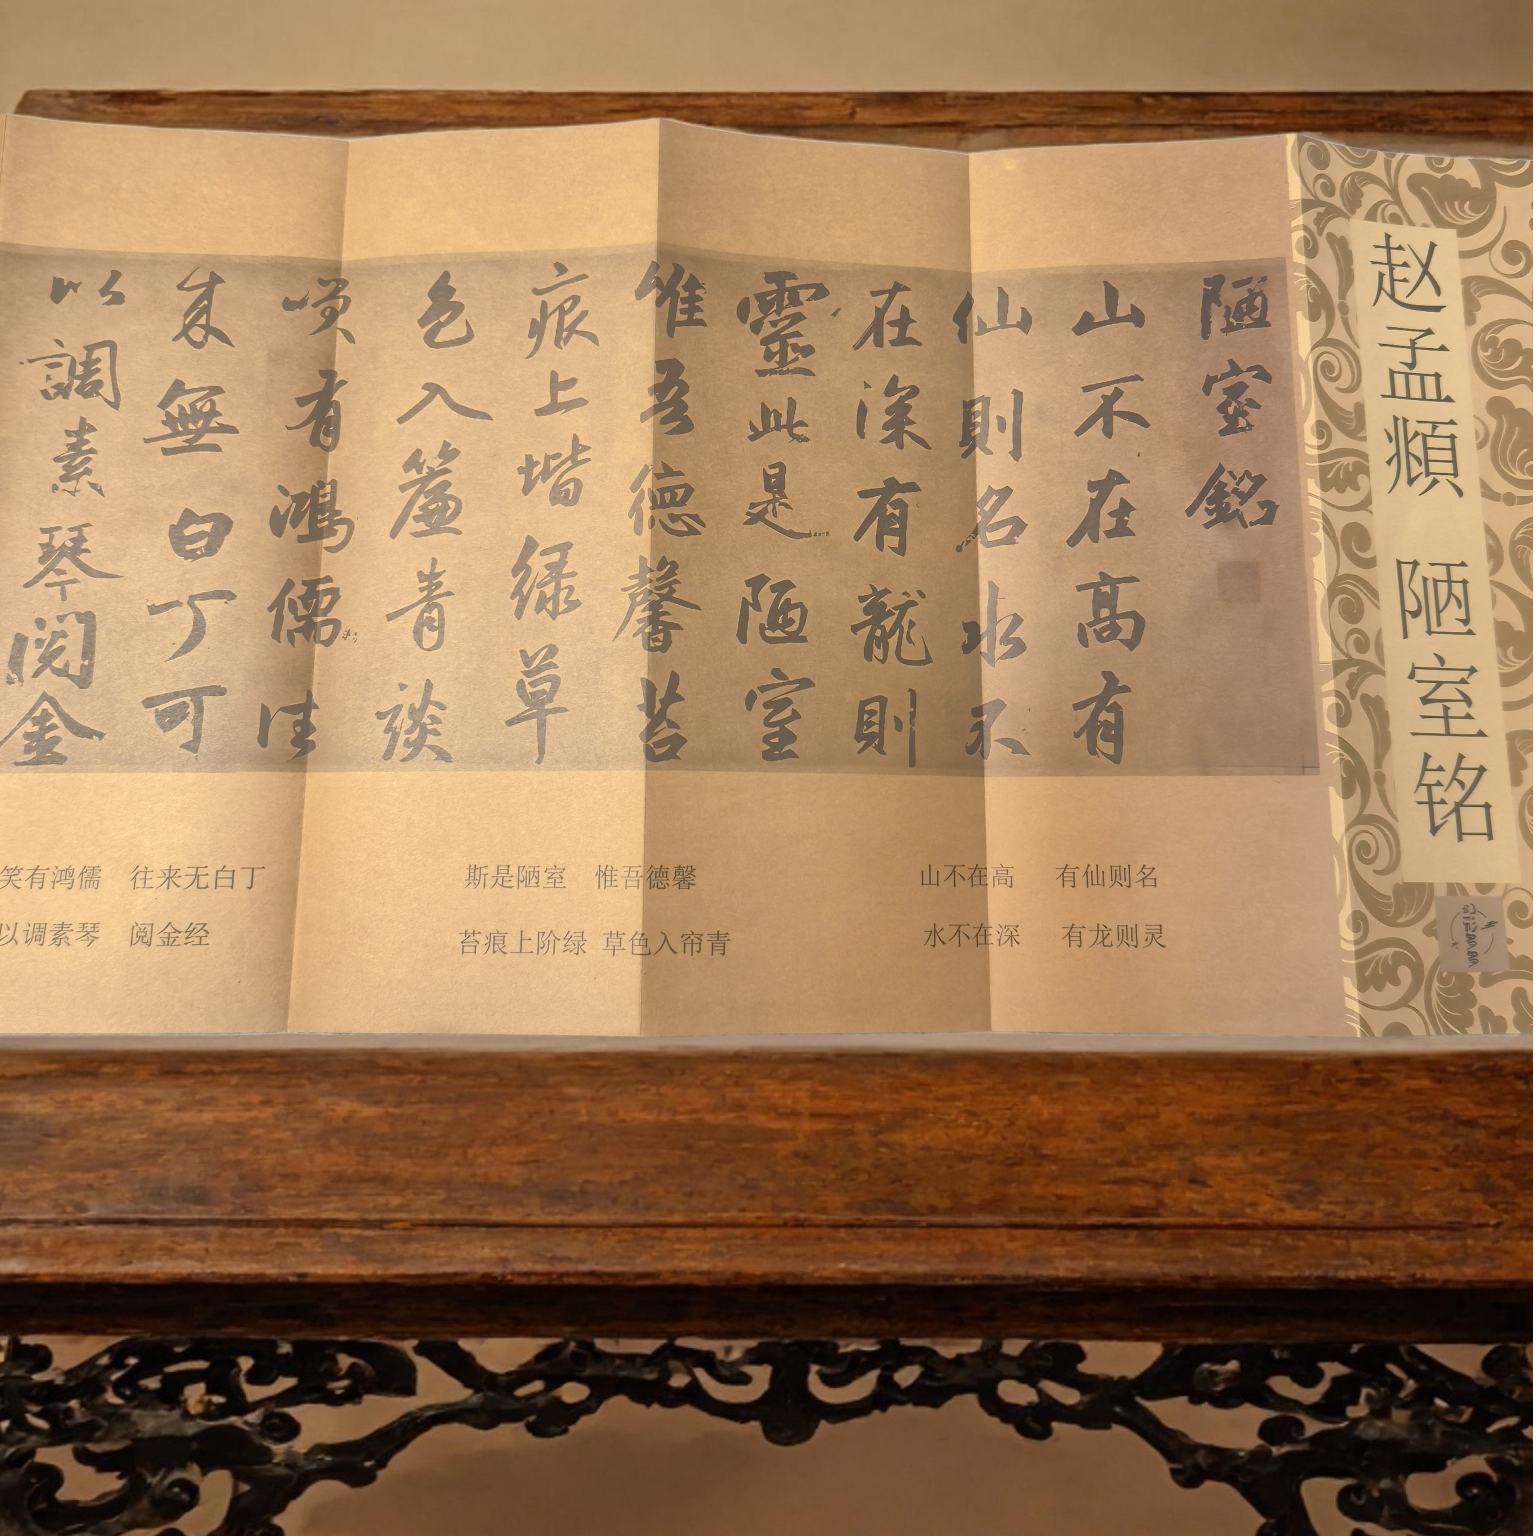 赵孟頫 陋室铭
陋室銘
山不在高有
仙則名水不
在深有龍則
靈此是陋室
惟吾德馨苔
痕上堦绿草
色入簾青談
咲有鴻儒往
来無白丁可
以調素琴閱金
山不在高 有仙则名
水不在深 有龙则灵
斯是陋室 惟吾德馨
苔痕上阶绿 草色入帘青
笑有鸿儒 往来无白丁
以调素琴 阅金经